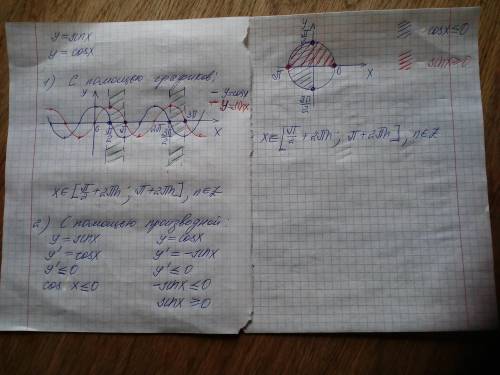 y = sinx
y = cosx
1) С помощью графиков:
y
- y=cosx
- y=sinx
0 π/2 π 2π 3π x
x∈[π/2+2πn; π+2πn], n∈Z
2) С помощью производной:
y = sinx y = cosx
y' = cosx y' = -sinx
y' ≤ 0 y' ≤ 0
cos x ≤ 0 -sinx ≤ 0
sinx ≥ 0
y
π/2
- cosx ≤ 0
π 0 x
- sinx ≥ 0
3π/2
x∈[π/2+2πn; π+2πn], n∈Z